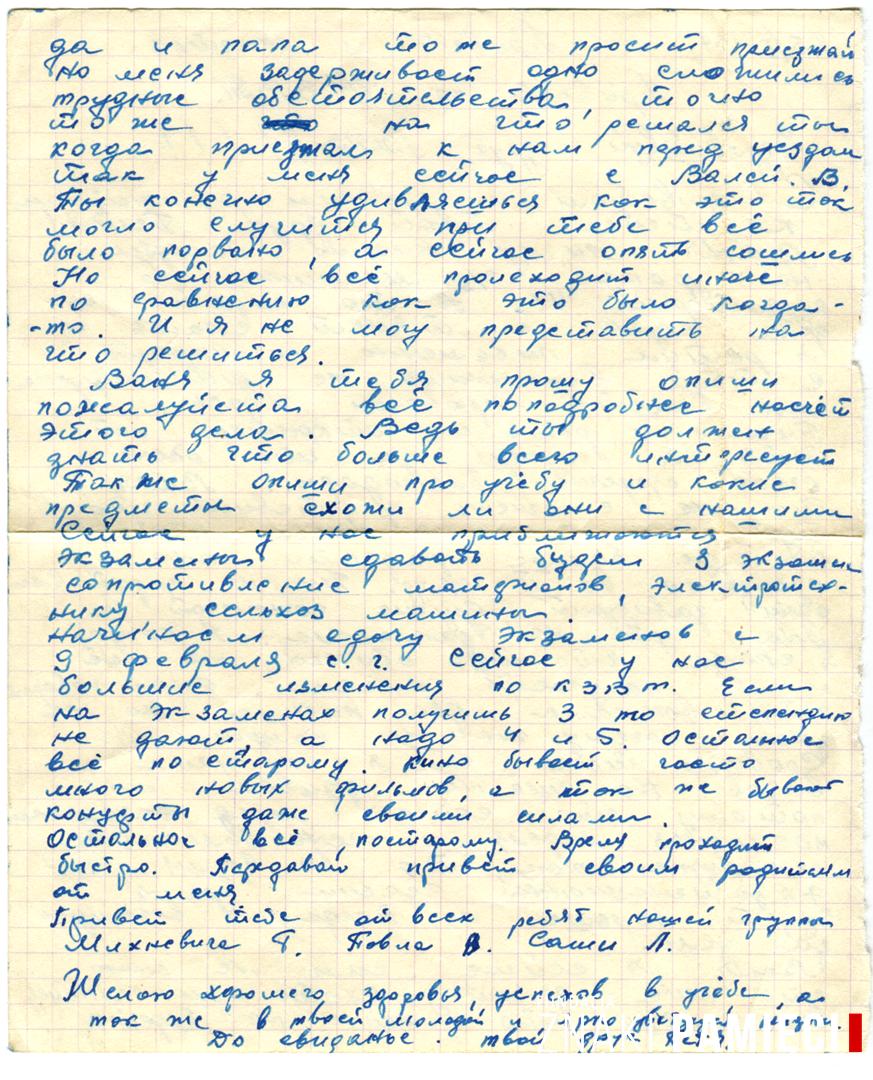 да и папа тоже просит приезжай
но меня задерживает одно сложились
трудные обстоятельства, точно
тоже на что решался ты
когда приезжал к нам перед уездом
так у меня сейчас с Валей. В.
Ты конечно удивляешься как это так
могло случится при тебе всё
было порвано, а сейчас опять сошлись
Но сейчас всё происходит иначе
по сравнению как это было когда-
-то. И я не могу представить на
что решиться.
Ваня я тебя прошу опиши
пожалуйста всё поподробнее насчёт
этого дела. Ведь ты должен
знать что больше всего интересует
Также опиши про учёбу и какие
предметы схожи ли они с нашими
Сейчас у нас приближаются
экзамены сдавать будем 3 экзамен
сопротивление матерьялов, электротех-
нику сельхоз машины.
Начинаем сдачу экзаменов с
9 февраля с.г. Сейчас у нас
большие изменения по к ззт. Если
на экзаменах получишь 3 то стспендию
не дают, а надо 4 и 5. Остальное
всё по старому. Кино бывает часто
много новых фильмов, а так же бывают
концерты даже своими силами.
Остальное всё постарому. Время проходит
быстро. Передавай привет своим родителям
от меня
Привет тебе от всех ребят нашей группы
Михневича Т. Павла В. Саши Л.
Желаю хорошего здоровья, успехов в учёбе, а
так же в твоей молодой и
До свиданье. твой друг
ZNAKI PAMIĘCI